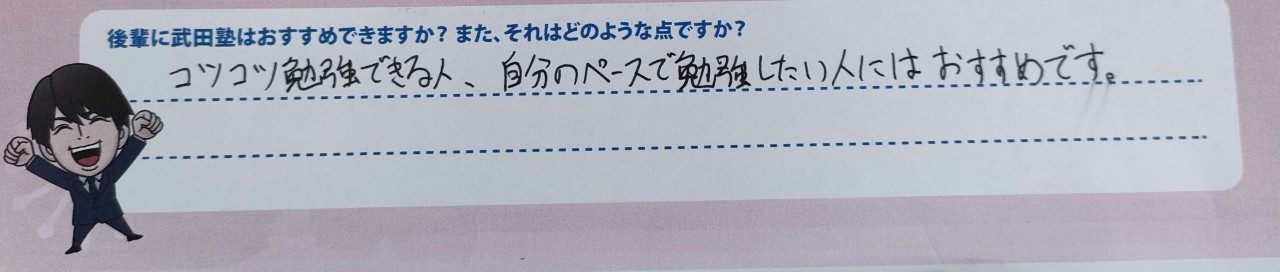 後輩に武田塾はおすすめできますか？また、それはどのような点ですか？
コツコツ勉強できる人、自分のペースで勉強したい人にはおすすめです。